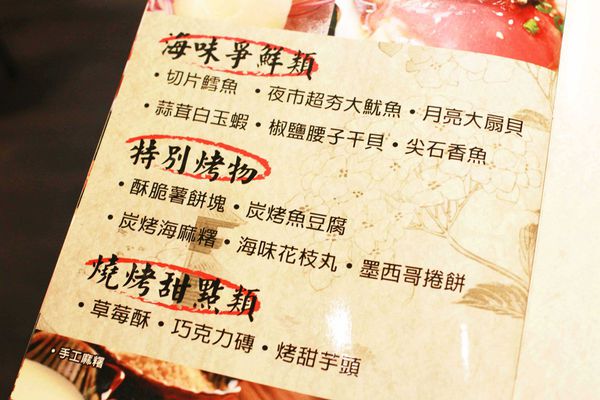 海味爭鮮類
・切片鱈魚 ・夜市超夯大魷魚 ・月亮大扇貝
・蒜茸白玉蝦 ・椒鹽腰子干貝 ・尖石香魚
特別烤物
・酥脆薯餅塊 ・炭烤魚豆腐
・炭烤海麻糬 ・海味花枝丸 ・墨西哥捲餅
燒烤甜點類
・草莓酥 ・巧克力磚 ・烤甜芋頭
・手工麻糬